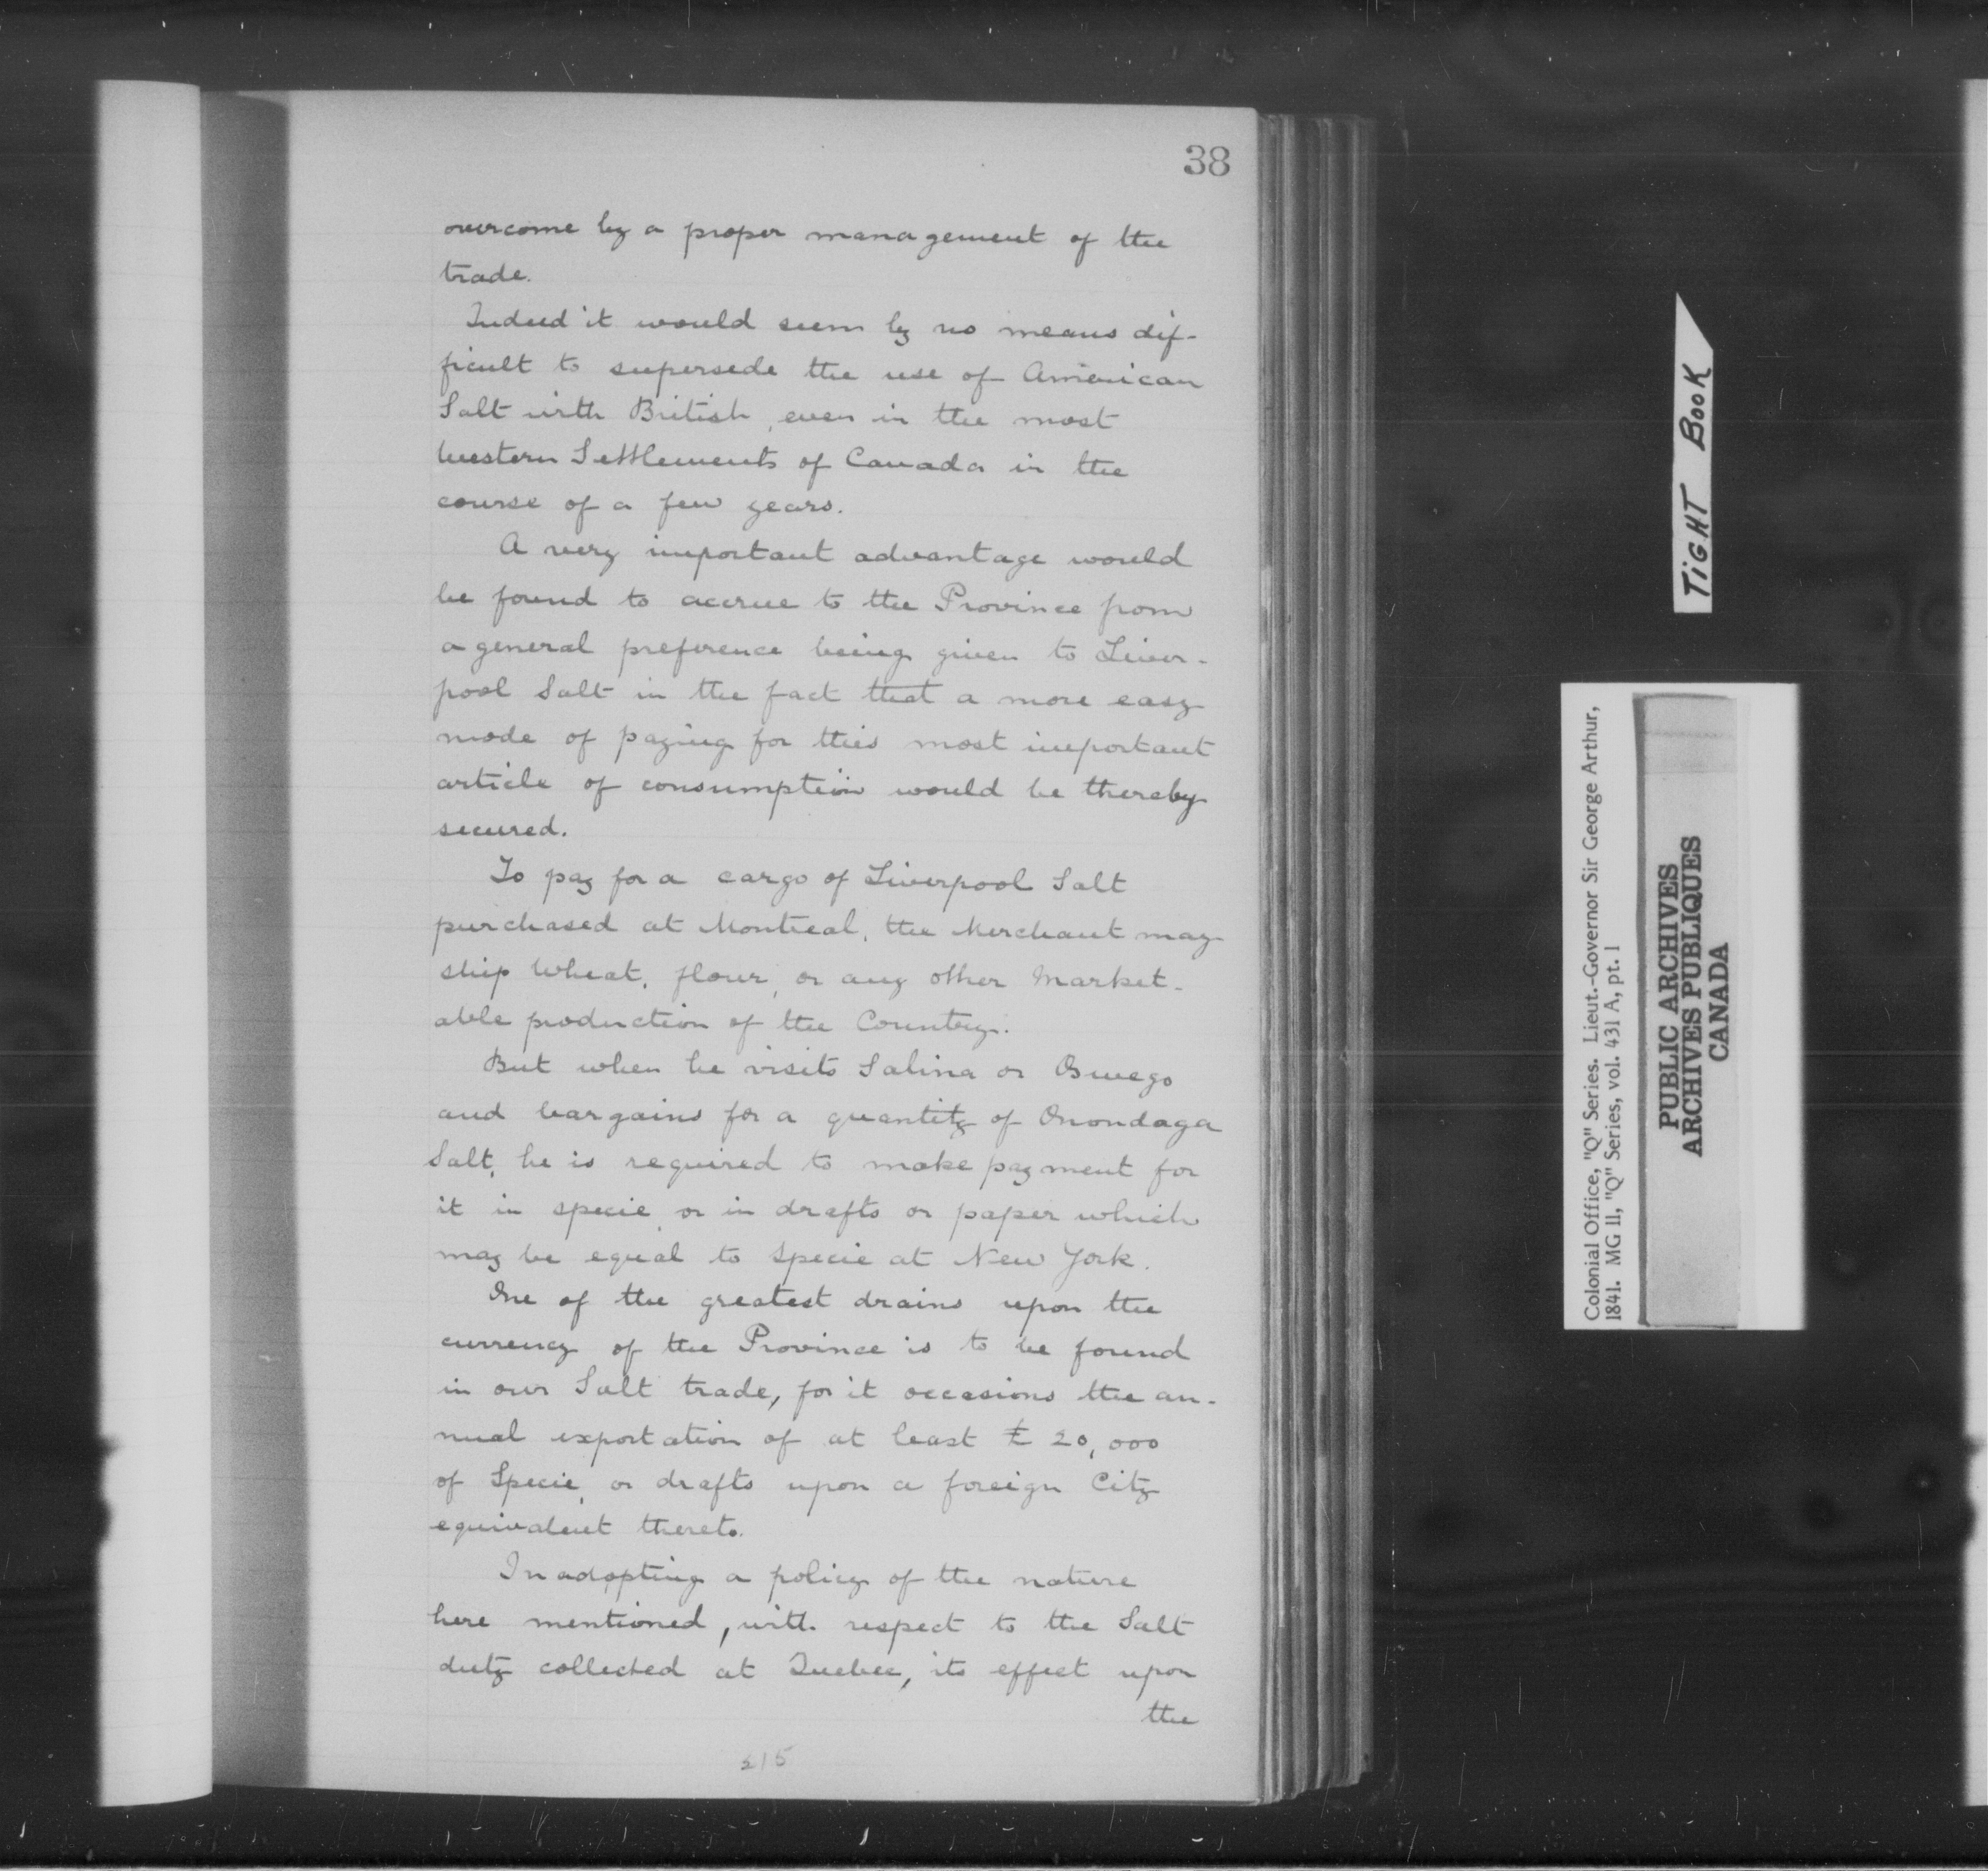 38
overcome by a proper management of the
trade.
Indeed it would seem by no means dif-
ficult to supersede the use of American
Salt with British, even in the most
Western Settlements of Canada in the
course of a few years.
A very important advantage would
be found to accrue to the Province from
a general preference being given to Liver-
pool Salt in the fact that a more easy
mode of paying for this most important
article of consumption would be thereby
secured.
To pay for a cargo of Liverpool Salt
purchased at Montreal, the Merchant may
ship Wheat, flour, or any other Market-
able production of the Country.
But when he visits Salina or Oswego
and bargains for a quantity of Onondaga
Salt, he is required to make payment for
it in specie, or in drafts or paper which
may be equal to specie at New York.
One of the greatest drains upon the
currency of the Province is to be found
in our Salt trade, for it occasions the an-
nual exportation of at least £ 20,000
of Specie, or drafts upon a foreign City
equivalent thereto.
In adopting a policy of the nature
here mentioned, with respect to the Salt
duty collected at Quebec, its effect upon
the
215
TIGHT BOOK
Colonial Office, "Q" Series. Lieut.-Governor Sir George Arthur,
1841. MG 11, "Q" Series, vol. 431 A, pt. 1
PUBLIC ARCHIVES
ARCHIVES PUBLIQUES
CANADA